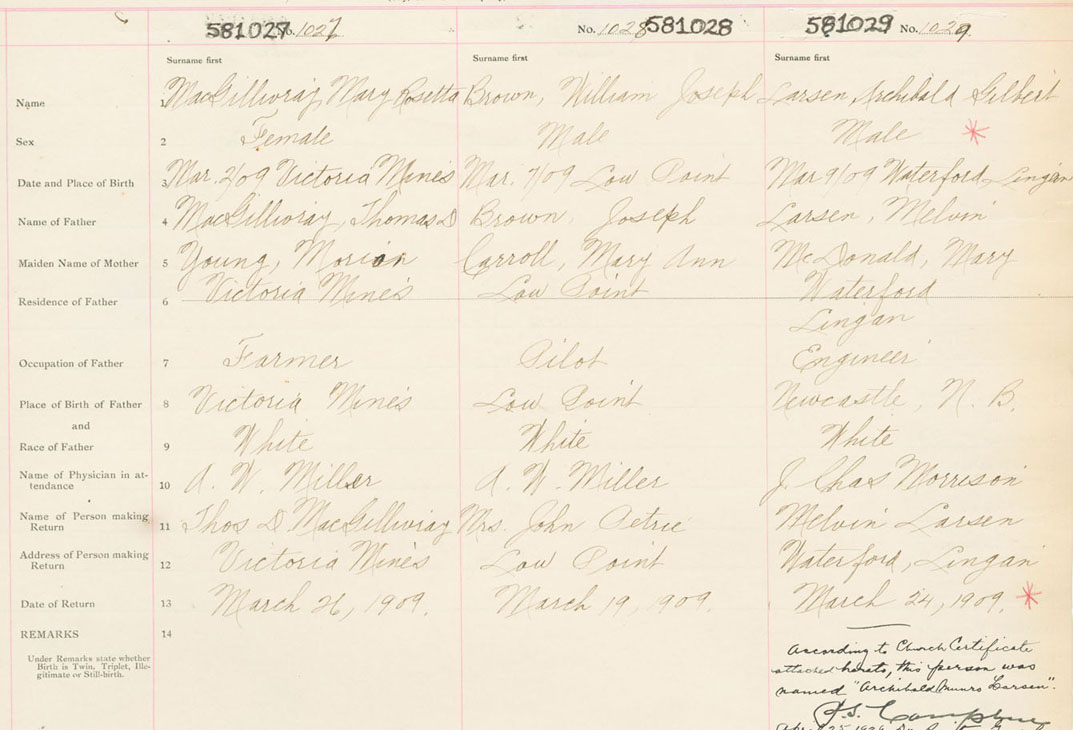 581027 No. 1027 No. 1028 581028 581029 No. 1029
Surname first Surname first Surname first
Name 1 MacGillivray, Mary Rosetta Brown, William Joseph Larsen, Archibald Gilbert
Sex 2 Female Male Male *
Date and Place of Birth 3 Mar. 2/09 Victoria Mines Mar. 7/09 Low Point Mar 9/09 Waterford Lingan
Name of Father 4 MacGillivray, Thomas D Brown, Joseph Larsen, Melvin
Maiden Name of Mother 5 Young, Morion Carroll, Mary Ann McDonald, Mary
Residence of Father 6 Victoria Mines Low Point Waterford
Lingan
Occupation of Father 7 Farmer Pilot Engineer
Place of Birth of Father 8 Victoria Mines Low Point Newcastle, N. B.
and
Race of Father 9 White White White
Name of Physician in at-
tendance 10 A. W. Miller A. W. Miller J. Chas Morrison
Name of Person making
Return 11 Thos D MacGillivray Mrs. John Petrie Melvin Larsen
Address of Person making
Return 12 Victoria Mines Low Point Waterford, Lingan
Date of Return 13 March 26, 1909. March 19, 1909. March 24, 1909. *
REMARKS 14
Under Remarks state whether
Birth is Twin, Triplet, Ille-
gitimate or Still-birth.
According to Church Certificate
attached hereto, this person was
named "Archibald Munro Larsen".